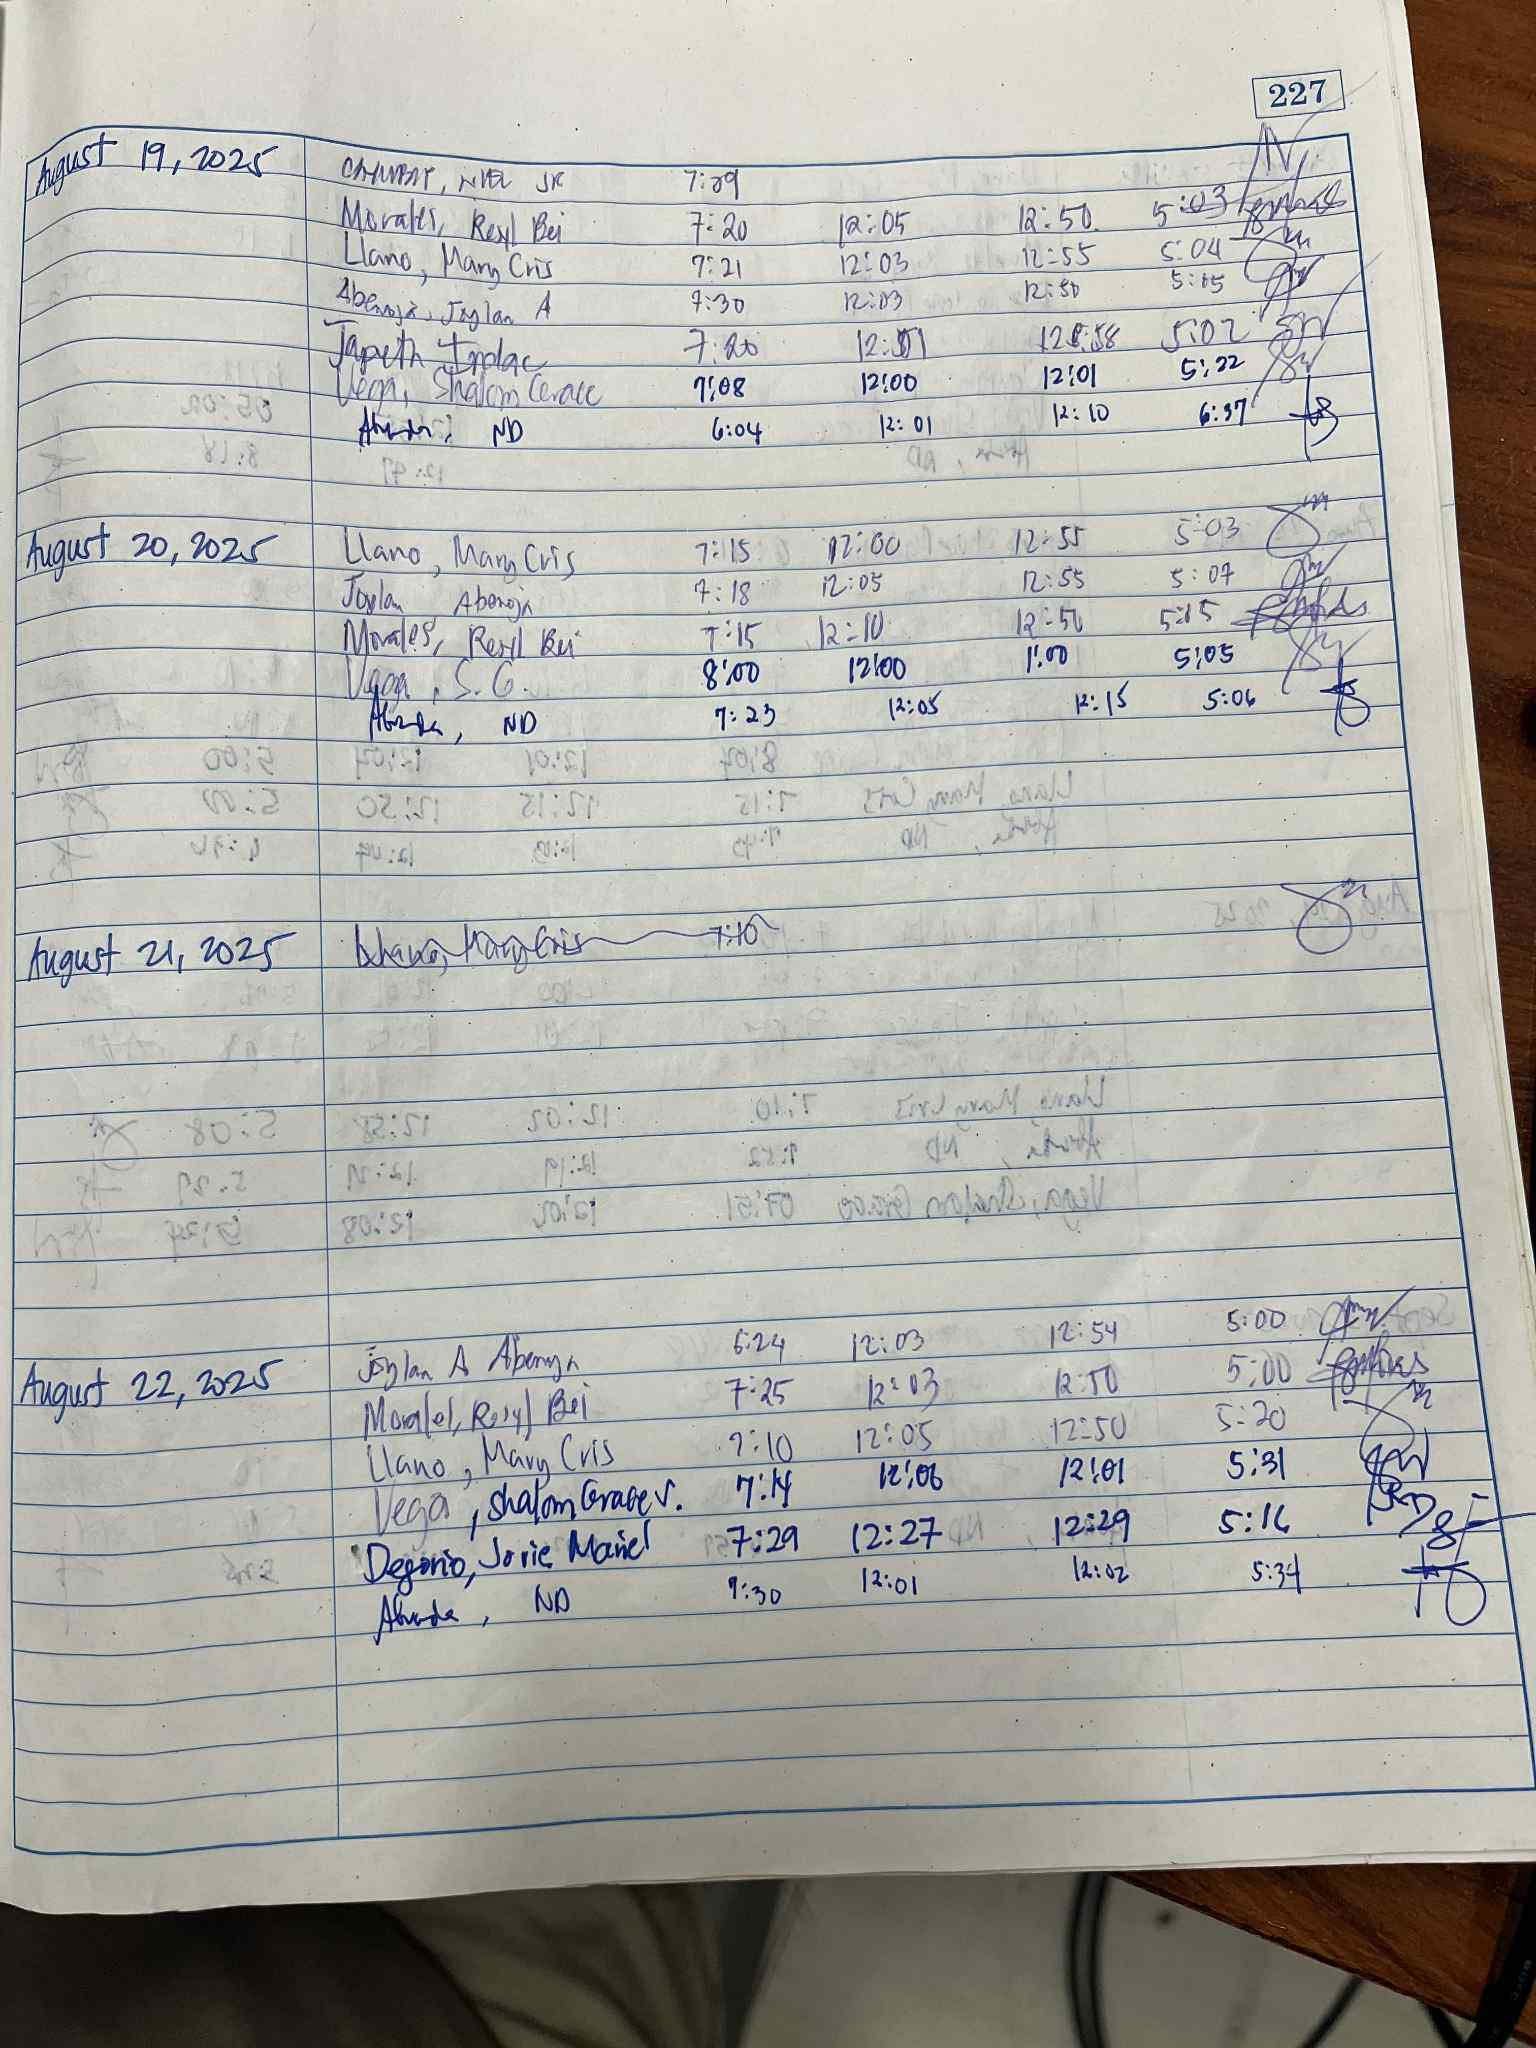 227
August 19, 2025
, NIEL JR 7:29
Morales, Resyl Bei 7:20 12:05 12:50 5:03
Llano, Mary Cris 7:21 12:03 12:55 5:04
Abenoja, Joylan A 7:30 12:03 12:50 5:05
Japeth 7:20 12:01 12:58 5:02
Vega, Shalom Grace 7:08 12:00 12:01 5:22
Abunda, ND 6:04 12:01 12:10 6:37
August 20, 2025 Llano, Mary Cris 7:15 12:00 12:55 5:03
Joylan Abenoja 7:18 12:05 12:55 5:07
Morales, Resyl Bei 7:15 12:10 12:50 5:15
Vega, S.G. 8:00 12:00 1:00 5:05
Abunda, ND 7:23 12:05 12:15 5:06
August 21, 2025 Llano, Mary Cris 7:10
Joylan A Abenoja 6:24 12:03 12:54 5:00
August 22, 2025
Morales, Resyl Bei 7:25 12:03 12:50 5:00
Llano, Mary Cris 7:10 12:05 12:50 5:20
Vega, Shalom Grace V. 7:14 12:06 12:01 5:31
Degorio, Jovie Mariel 7:29 12:27 12:29 5:16
Abunda, ND 7:30 12:01 12:02 5:34